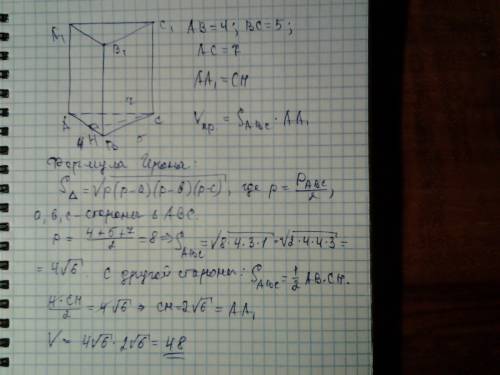 A₁ C₁ AB=4; BC=5;
B₁ AC=7
AA₁=CH
7
A C Vпр = S_ABC · AA₁
4 H B 5
Формула Герона:
S_Δ=√p(p-a)(p-b)(p-c), где p = P_ABC/2,
a, b, c-стороны ΔABC.
p = (4+5+7)/2 = 8 ⇒ S_ABC = √8·4·3·1 = √2·4·4·3 =
= 4√6. С другой стороны: S_ABC = 1/2 AB·CH.
4·CH/2 = 4√6 ⇒ CH=2√6 = AA₁
V = 4√6 · 2√6 = 48